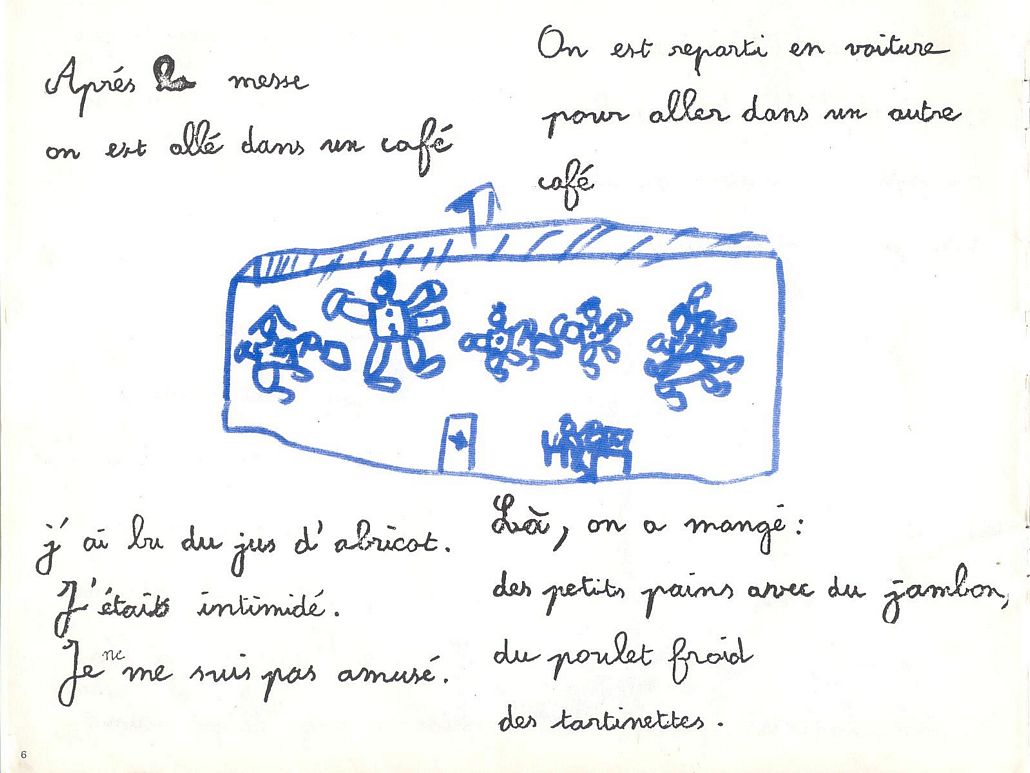 Aprés la messe
on est allé dans un café
On est reparti en voiture
pour aller dans un autre
café
j'ai bu du jus d'abricot.
J'étais intimidé.
Je ne me suis pas amusé.
Là, on a mangé :
des petits pains avec du jambon,
du poulet froid
des tartinettes.
6